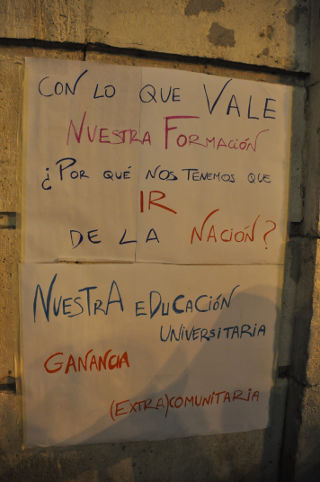 CON LO QUE VALE
NUESTRA FORMACIÓN
¿POR QUÉ NOS TENEMOS QUE
IR
DE LA NACIÓN?
NUESTRA EDUCACIÓN
UNIVERSITARIA
GANANCIA
(EXTRA)COMUNITARIA